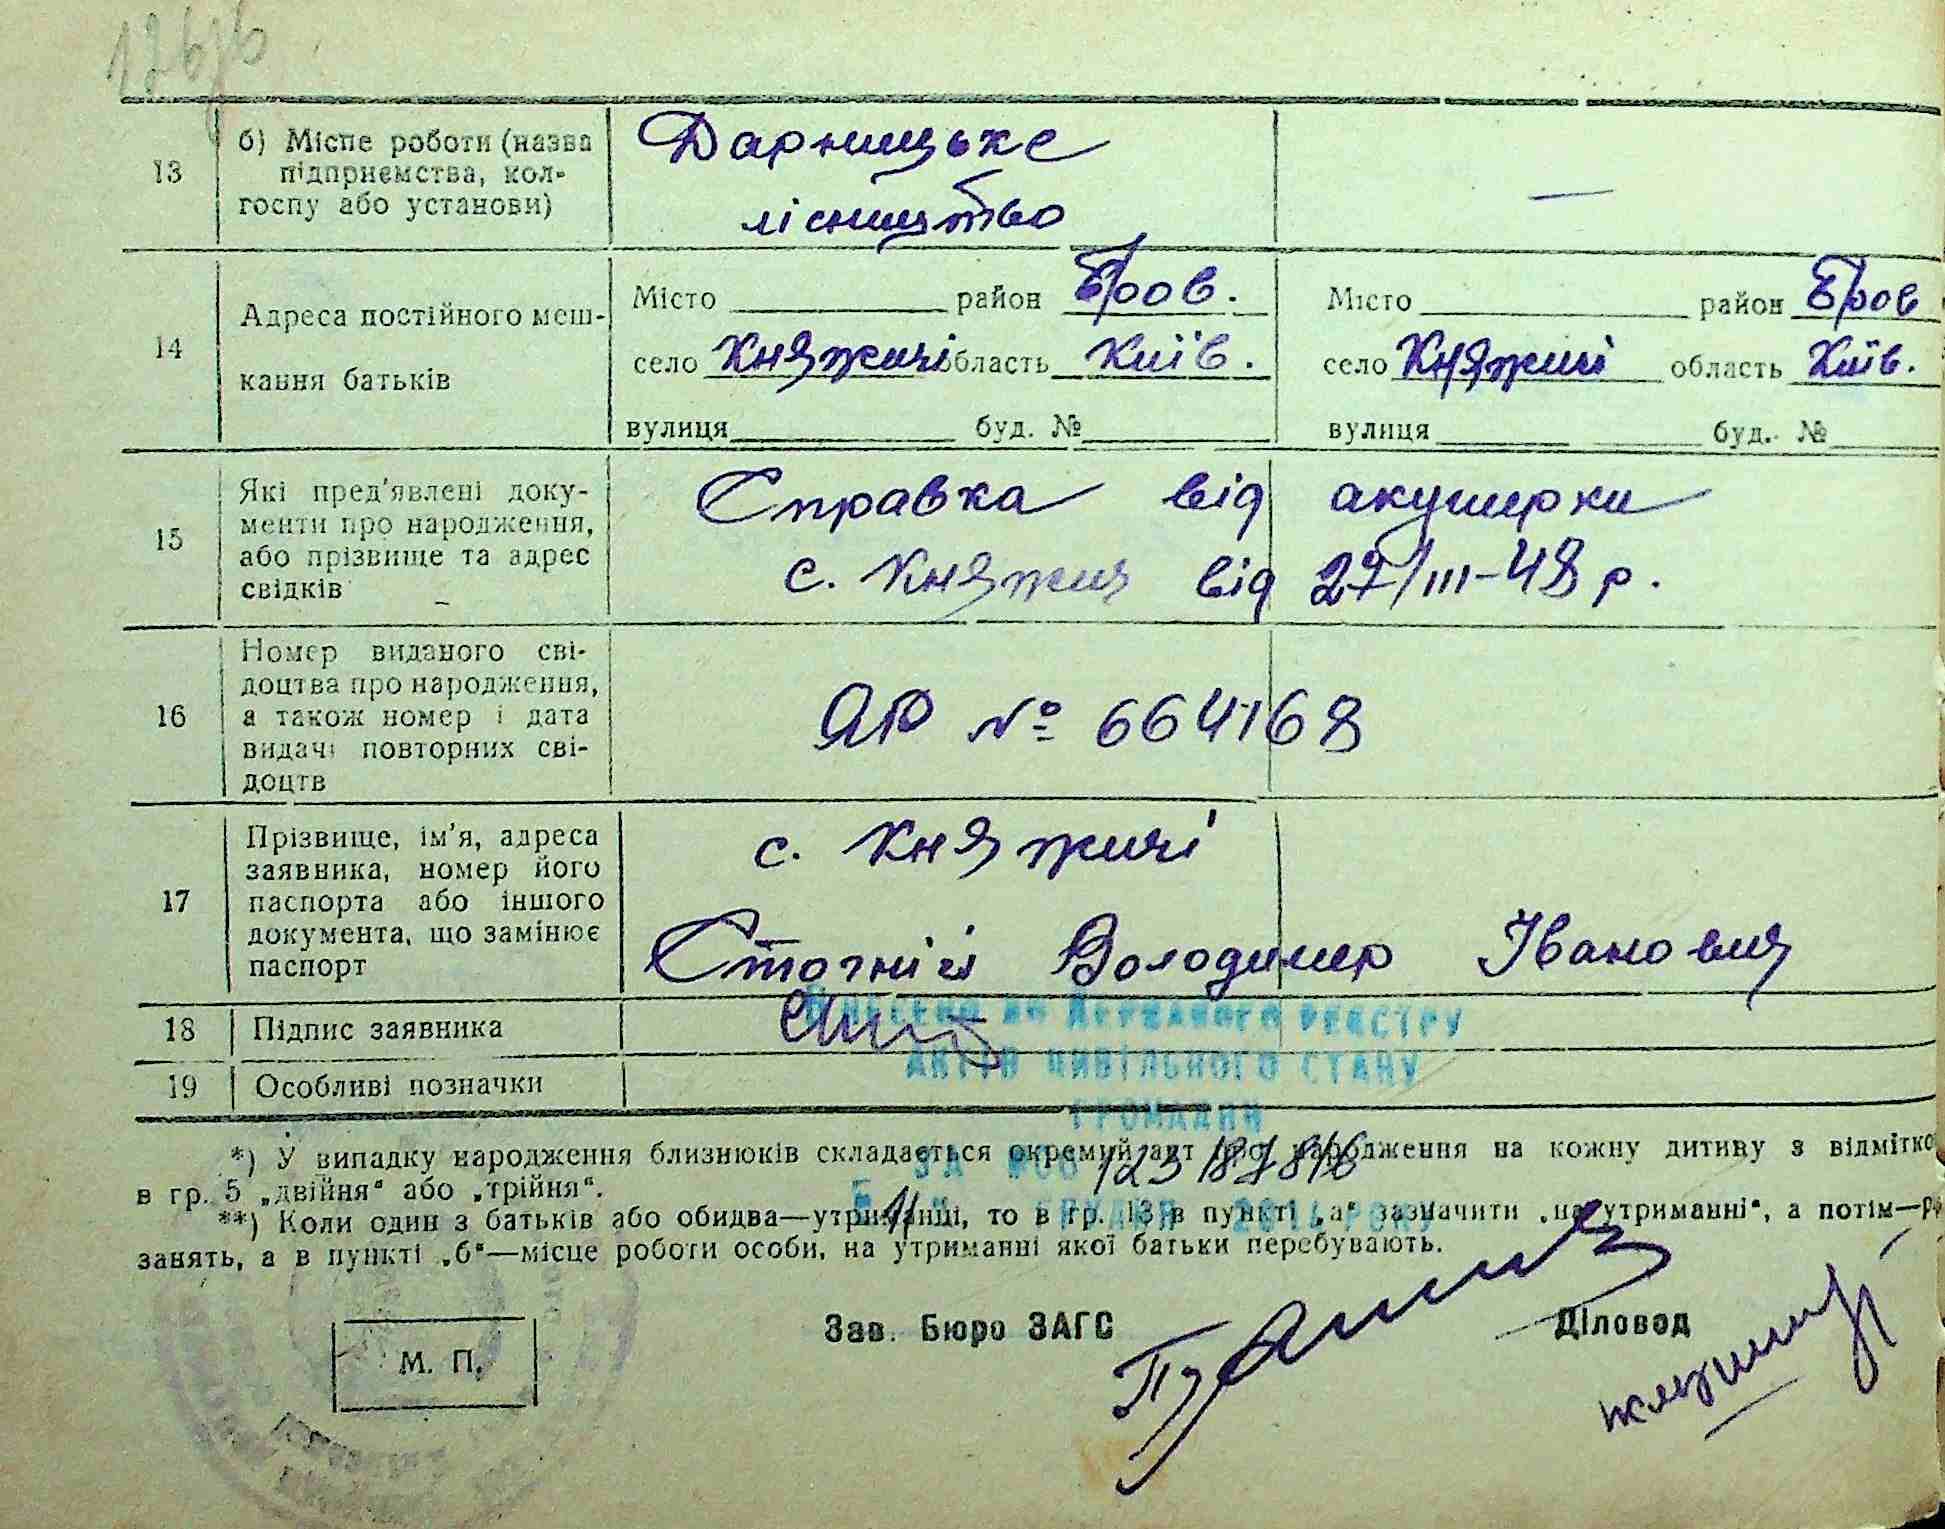 13
б) Місце роботи (назва
підприємства, кол-
госпу або установи)
Дарницьке
лісництво
—
14
Адреса постійного меш-
кання батьків
Місто ________ район Бров.
село Княжичі область Київ.
вулиця ________ буд. № ________
Місто ________ район Бров
село Княжичі область Київ.
вулиця ________ буд. № ________
15
Які пред'явлені доку-
менти про народження,
або прізвище та адрес
свідків
Справка від акушерки
с. Княжич від 27/III-48 р.
16
Номер виданого сві-
доцтва про народження,
а також номер і дата
видачі повторних сві-
доцтв
ЯР № 664168
17
Прізвище, ім'я, адреса
заявника, номер його
паспорта або іншого
документа, що замінює
паспорт
с. Княжичі
Стогній Володимер Іванович
18
Підпис заявника
19
Особливі позначки
Внесено до Державного реєстру
актів цивільного стану
громадян
за №00
*) У випадку народження близнюків складається окремий акт про народження на кожну дитину з відмітко
в гр. 5 „двійня“ або „трійня“.
**) Коли один з батьків або обидва—утриманці, то в гр. 13 в пункті „а“ зазначити „на утриманні“, а потім—р
занять, а в пункті „б“—місце роботи особи, на утриманні якої батьки перебувають.
М. П.
Зав. Бюро ЗАГС
Діловод